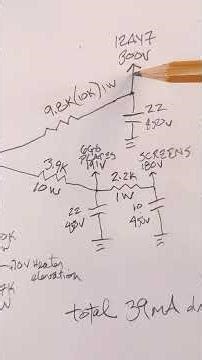 12AY7
300V
9.2K (10K) 1W
22
450V
6G6
PLATES
191V
SCREENS
180V
3.9K
10W
2.2K
1W
22
450V
10
450V
70V Heater
elevation
total 39mA